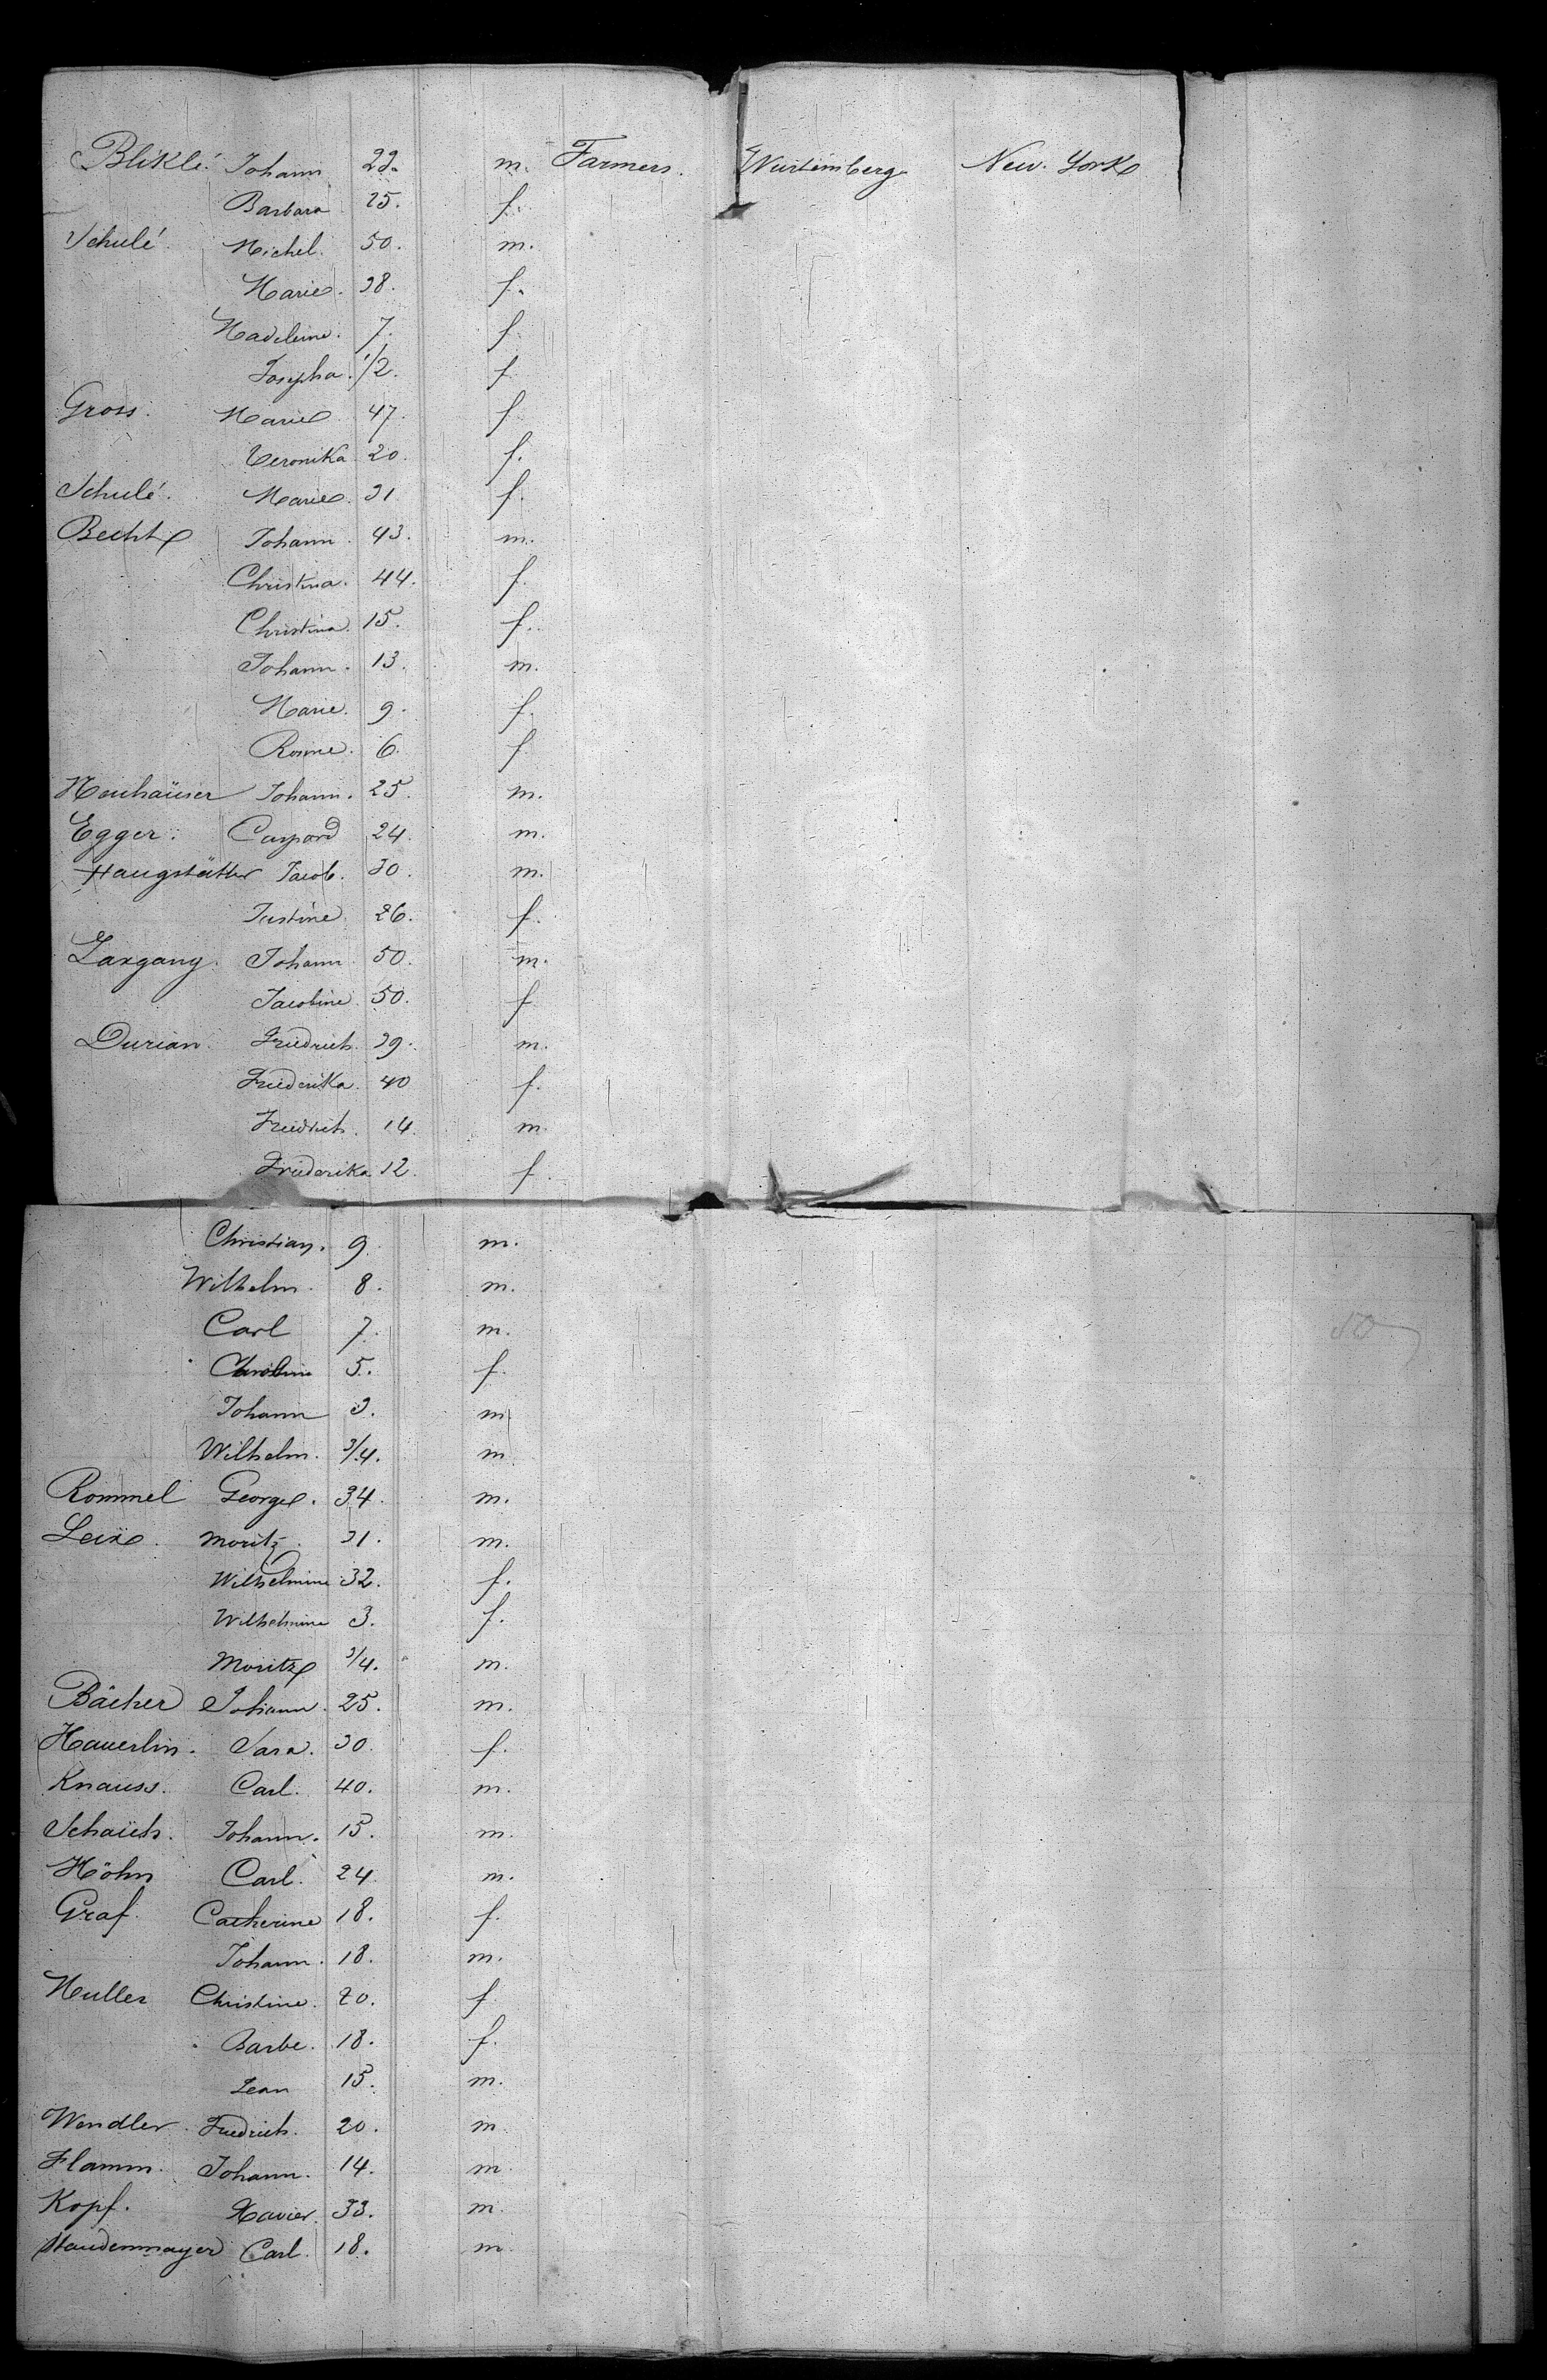 Bliklé Johann 22. m. Farmers. Wurtemberg New. York
Barbara 25. f.
Schulé. Michel. 50. m.
Marie. 38. f.
Madeleine. 7. f.
Josepha. 1/2. f.
Gross. Marie 47. f.
Veronika 20. f.
Schulé. Marie 31 f.
Becht Johann 43. m.
Christina. 44. f.
Christina. 15. f.
Johann. 13. m.
Marie. 9. f.
6. f.
Neuhaüser Johann. 25. m.
Egger. Caspard 24. m.
Haugstätter Jacob. 30. m.
Justine 26. f.
Johann 50. m.
Jacobine 50. f
Durian. Friedrich. 39. m.
Friederika. 40 f.
Friedrich. 14. m.
Friederika 12. f.
Christian. 9. m.
Wilhelm. 8. m.
Carl 7. m.
5. f.
Johann 3. m
Wilhelm. 3/4. m
Rommel George. 34. m.
Moritz. 31. m.
Wilhelmine 32. f.
Wilhelmine 3. f.
Moritz 3/4. m.
Bächer Johann. 25. m.
Hauerlin. Sara. 30. f.
Knauss. Carl. 40. m.
Schaüch. Johann. 15. m.
Höhn Carl. 24 m.
Graf. Catherine 18. f.
Johann. 18. m.
Muller Christine. 20. f
Barbe. 18. f.
Jean 15. m.
Wendler. Friedrich. 20. m.
Flamm. Johann. 14. m
Kopf. Xavier. 33. m
Staudenmayer Carl. 18. m.